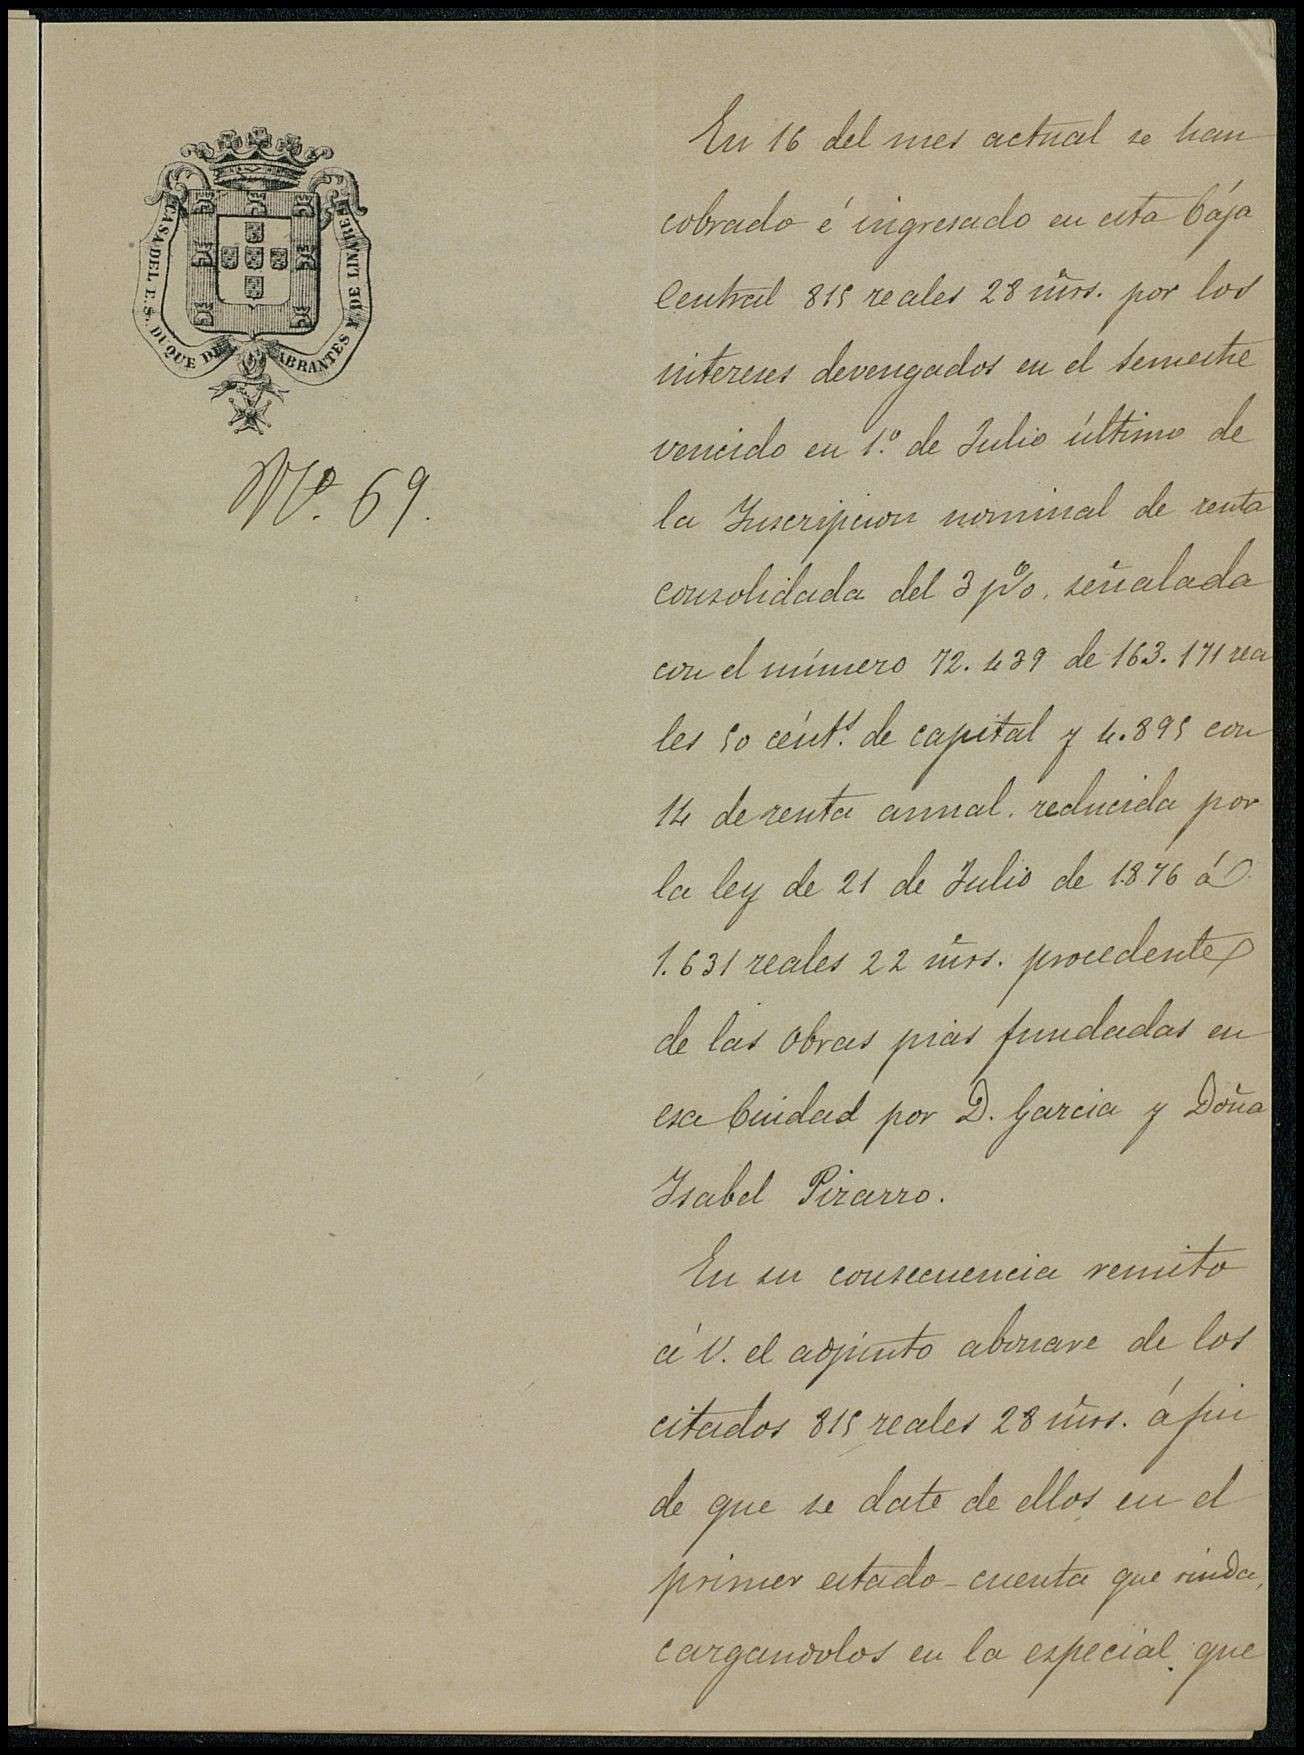 CASA DEL E.S. DUQUE DE ABRANTES Y DE LINARES
Nº. 69.
En 16 del mes actual se han
cobrado é ingresado en esta Cája
Central 815 reales 28 mrs. por los
intereses devengados en el semestre
vencido en 1.º de Julio último de
la Inscripcion nominal de renta
consolidada del 3 pº/o. señalada
con el número 72.439 de 163.171 rea
les 50 cént.s de capital y 4.895 con
14 de renta annal. reducida por
la ley de 21 de Julio de 1.876 á
1.631 reales 22 mrs. procedente
de las obras pias fundadas en
esa Ciudad por D. Garcia y Doña
Isabel Pizarro.
En su consecuencia remito
á V. el adjunto abonare de los
citados 815 reales 28 mrs. á fin
de que se date de ellos en el
primer estado-cuenta que rinda,
cargandolos en la especial que